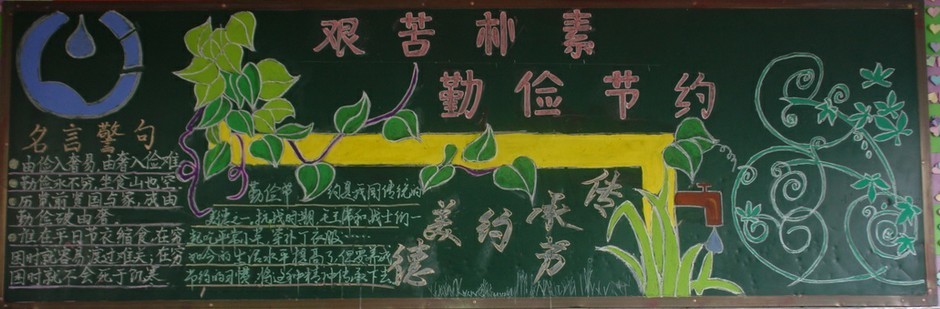 艰苦朴素
勤俭节约
名言警句
由俭入奢易,由奢入俭难
勤俭永不穷,坐食山也空
历览前贤国与家,成由
勤俭破由奢
谁在平日节衣缩食,在穷
困时就容易渡过难关;在富
困时就不会死于饥寒
勤俭节约是我国传统的
美德之一,抗战时期,毛主席和战士们一
起吃草根小菜,穿补丁衣服……
如今的生活水平提高了,但要养成
节约的习惯,将这种精神传承下去
传
承
节
约
美
德